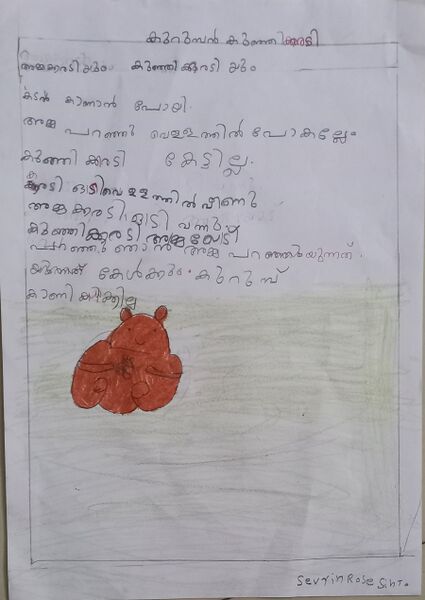 കുറുമ്പൻ കുഞ്ഞികരടി
അമ്മകരടിയും കുഞ്ഞികരടിയും
കടൽ കാണാൻ പോയി.
അമ്മ പറഞ്ഞു വെള്ളത്തിൽ പോകല്ലേ
കുഞ്ഞി കരടി കേട്ടില്ല.
കരടി ഓടി വെള്ളത്തിൽ വീണു
അമ്മകരടി ഓടി വന്നു
കുഞ്ഞിക്കരടി അമ്മയോട്
പറഞ്ഞു ഞാൻ അമ്മ പറഞ്ഞുയുന്നത്
കേൾക്കും. കുറുമ്പ്
കാണിക്കില്ല
Sevrin Rose